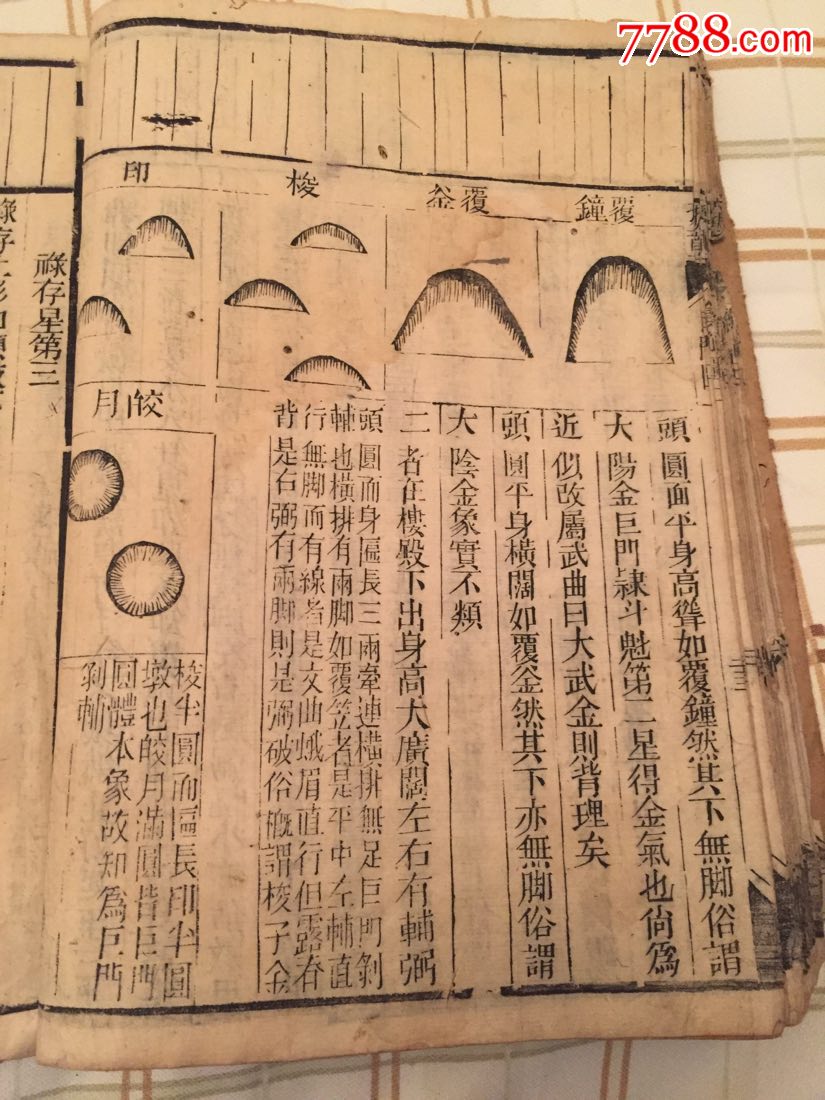 7788.com
覆鐘
覆釜
梭
印
頭圓而平身高聳如覆鐘然其下無脚俗謂
大陽金巨門隷斗魁第二星得金氣也尙爲
近似改屬武曲曰大武金則背理矣
頭圓平身橫闊如覆釜然其下亦無脚俗謂
大陰金象實不類
二者在樓殿下出身高大廣闊左右有輔弼
頭圓而身匾長三兩牽連橫排無足巨門剝
輔也橫排有兩脚如覆笠者是平中左輔直
行無脚而有線者是文曲蛾眉直行但露脊
背是右弼有兩脚則是弼破俗槪謂梭子金
皎月
梭半圓而匾長印半圓
墩也皎月滿圓皆巨門
圓體本象故知爲巨門
剝輔
祿存星第三